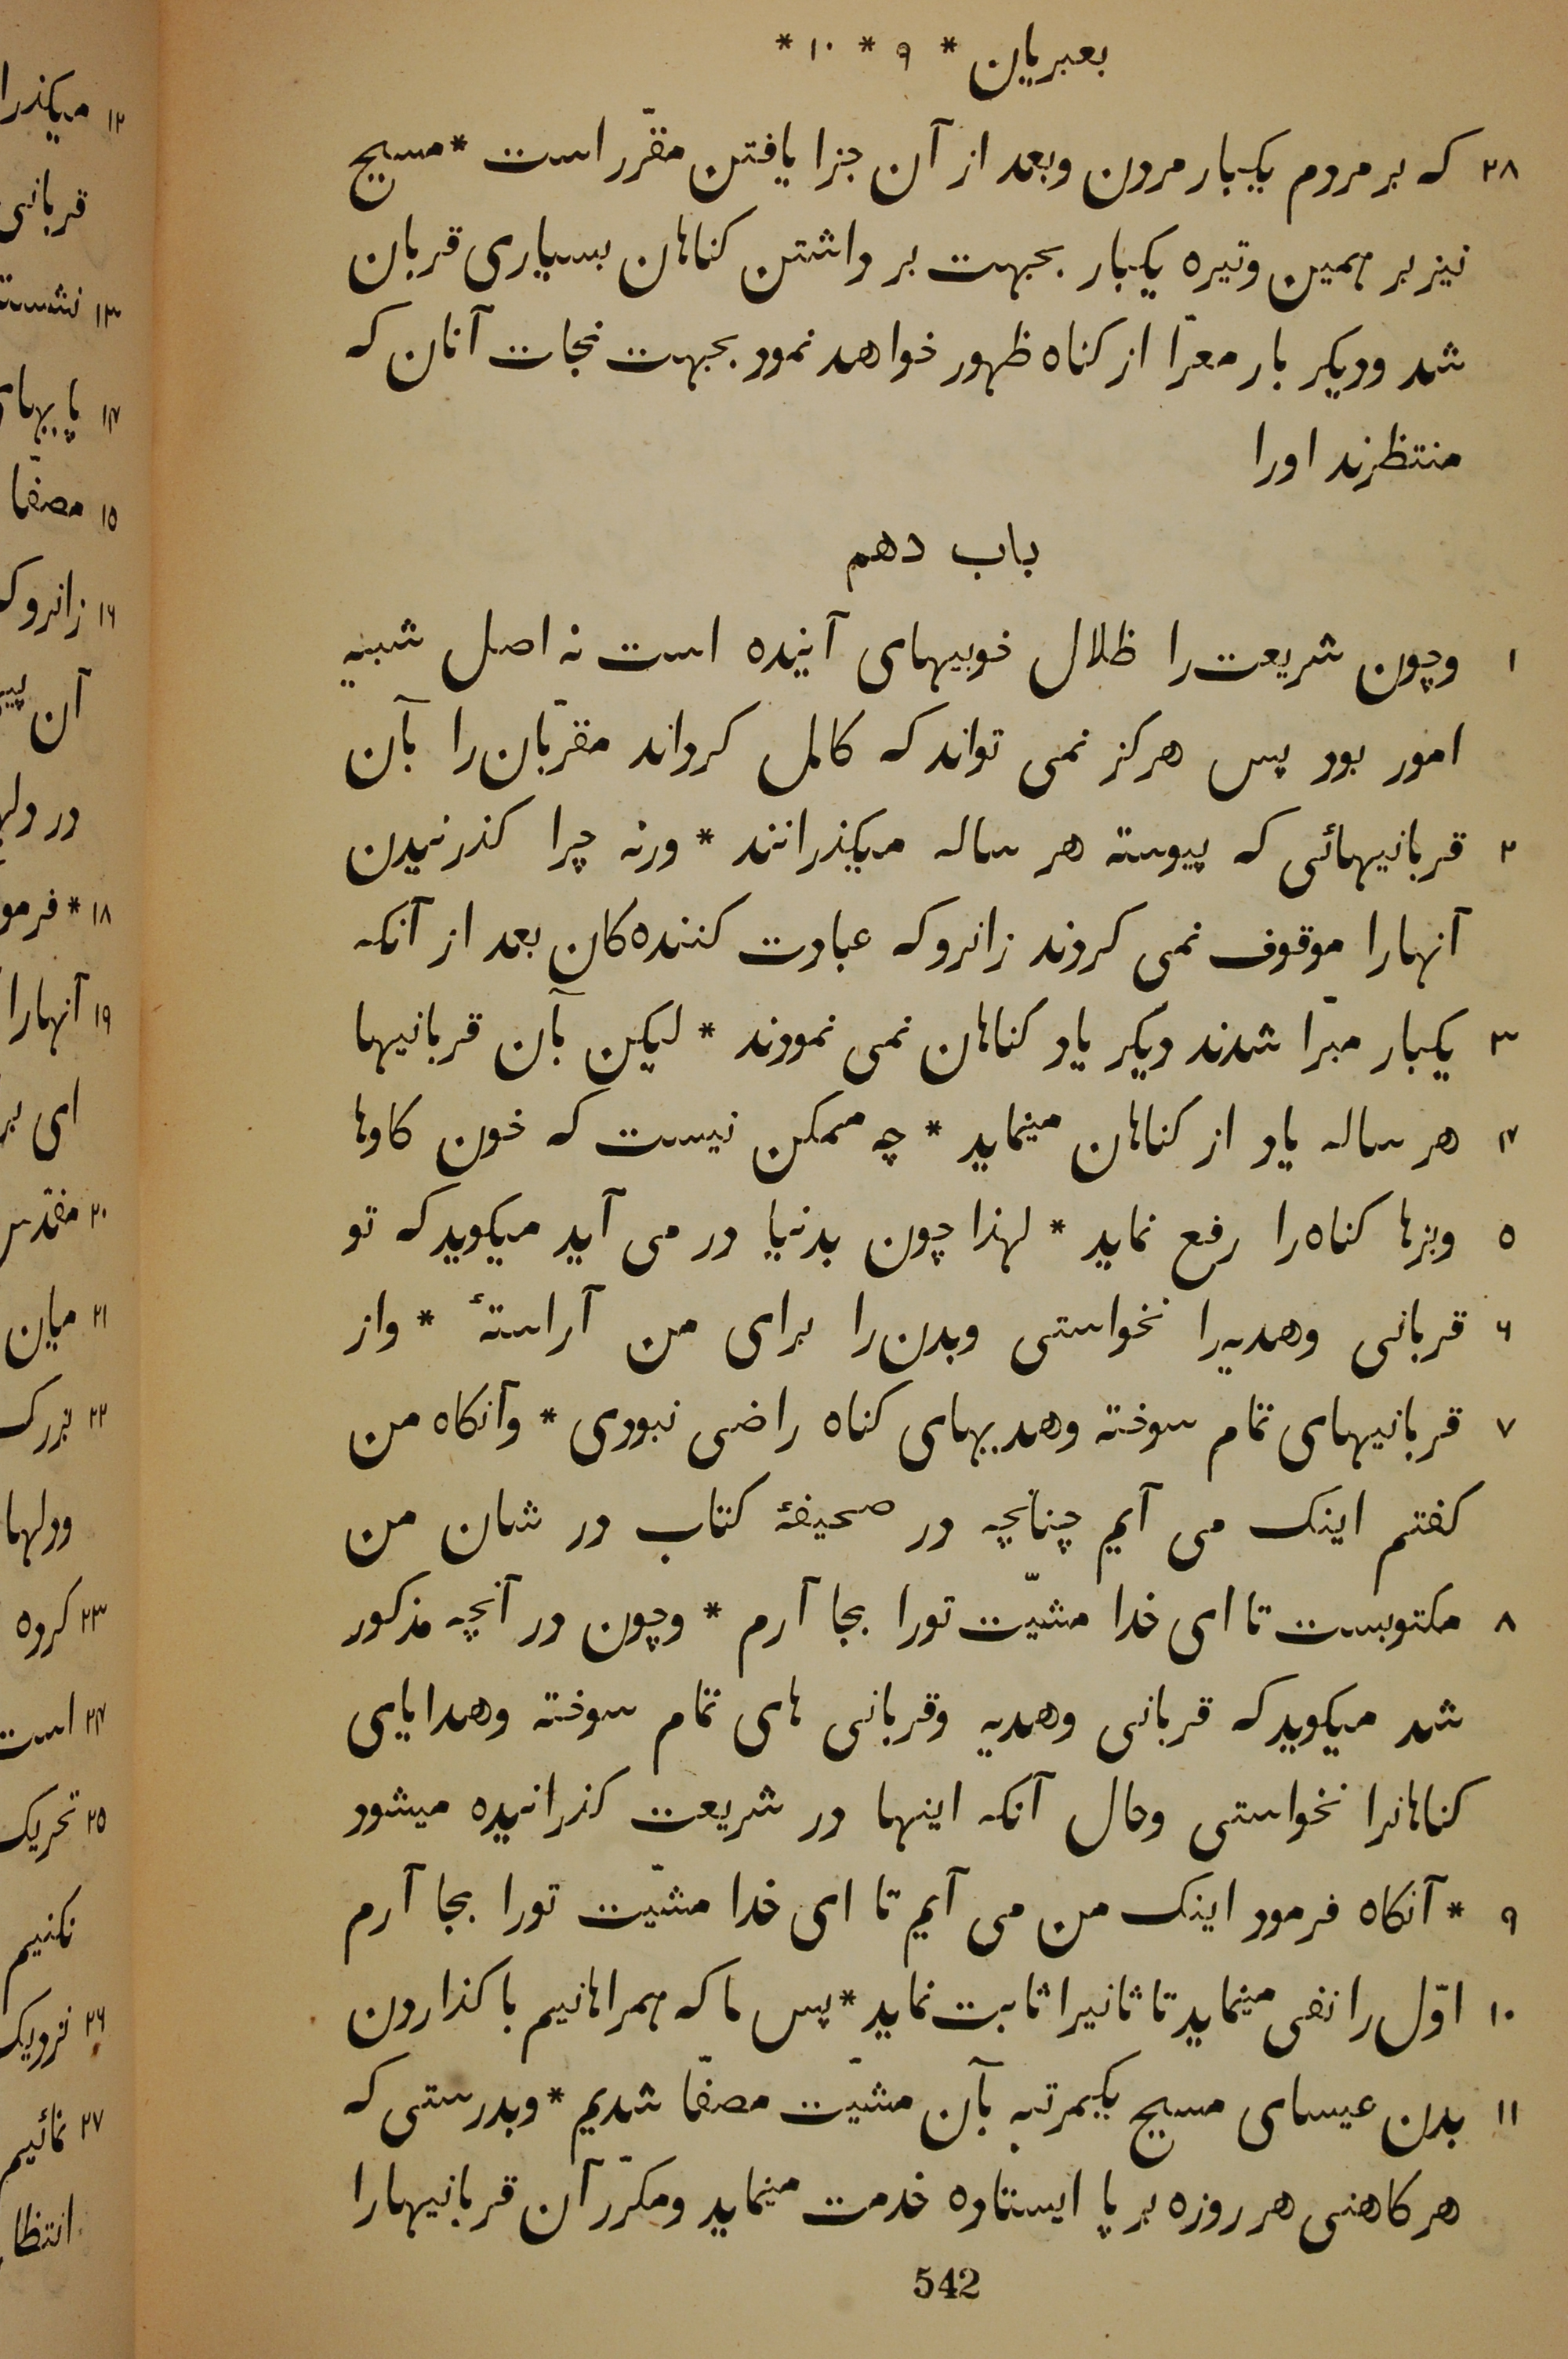 بعبریان * ۹ * ۱۰ *
۲۸ که بر مردم یکبار مردن وبعد از آن جزا یافتن مقرّر است * مسیح
نیز بر همین وتیره یکبار بجهت بر داشتن کناهان بسیاری قربان
شد ودیکر بار معرّا از کناه ظهور خواهد نمود بجهت نجات آنان که
منتظرند اورا
باب دهم
۱ وچون شریعت را ظلال خوبیهای آینده است نه اصل شبیه
امور بود پس هرکز نمی تواند که کامل کرداند مقرّبان را بآن
۲ قربانیهائی که پیوسته هر ساله میکذرانند * ورنه چرا کذرنیدن
آنهارا موقوف نمی کردند زانرو که عبادت کننده کان بعد از آنکه
۳ یکبار مبرّا شدند دیکر یاد کناهان نمی نمودند * لیکن بآن قربانیها
۴ هر ساله یاد از کناهان مینماید * چه ممکن نیست که خون کاوها
۵ وبزها کناه را رفع نماید * لهذا چون بدنیا در می آید میکوید که تو
۶ قربانی وهدیه‌را نخواستی وبدن را برای من آراستهٔ * واز
۷ قربانیهای تمام سوخته وهدیهای کناه راضی نبودی * وآنکاه من
کفتم اینک می آیم چنانچه در صحیفهٔ کتاب در شان من
۸ مکتوبست تا ای خدا مشیّت تورا بجا آرم * وچون در آنچه مذکور
شد میکوید که قربانی وهدیه وقربانی های تمام سوخته وهدایای
کناهانرا نخواستی وحال آنکه اینها در شریعت کذرانیده میشود
۹ * آنکاه فرمود اینک من می آیم تا ای خدا مشیّت تورا بجا آرم
۱۰ اوّل را نفی مینماید تا ثانیرا ثابت نماید * پس ما که همراهانیم با کذاردن
۱۱ بدن عیسای مسیح یکمرتبه بآن مشیّت مصفّا شدیم * وبدرستی که
هر کاهنی هر روزه بر پا ایستاده خدمت مینماید ومکرّر آن قربانیهارا
542
۱۲ میکذرا
قربانی
۱۳ نشست
۱۴ پا بهای
۱۵ مصفّا
۱۶ زانرو ک
در دله
۱۸ * فرمو
۱۹ آنهارا
ای بر
۲۱ میان
۲۲ بزرک
ودلها
۲۳ کرده
۲۴ است
۲۵ تحریک
نکنیم
۲۶ نزدیک
۲۷ نمائیم
انتظا